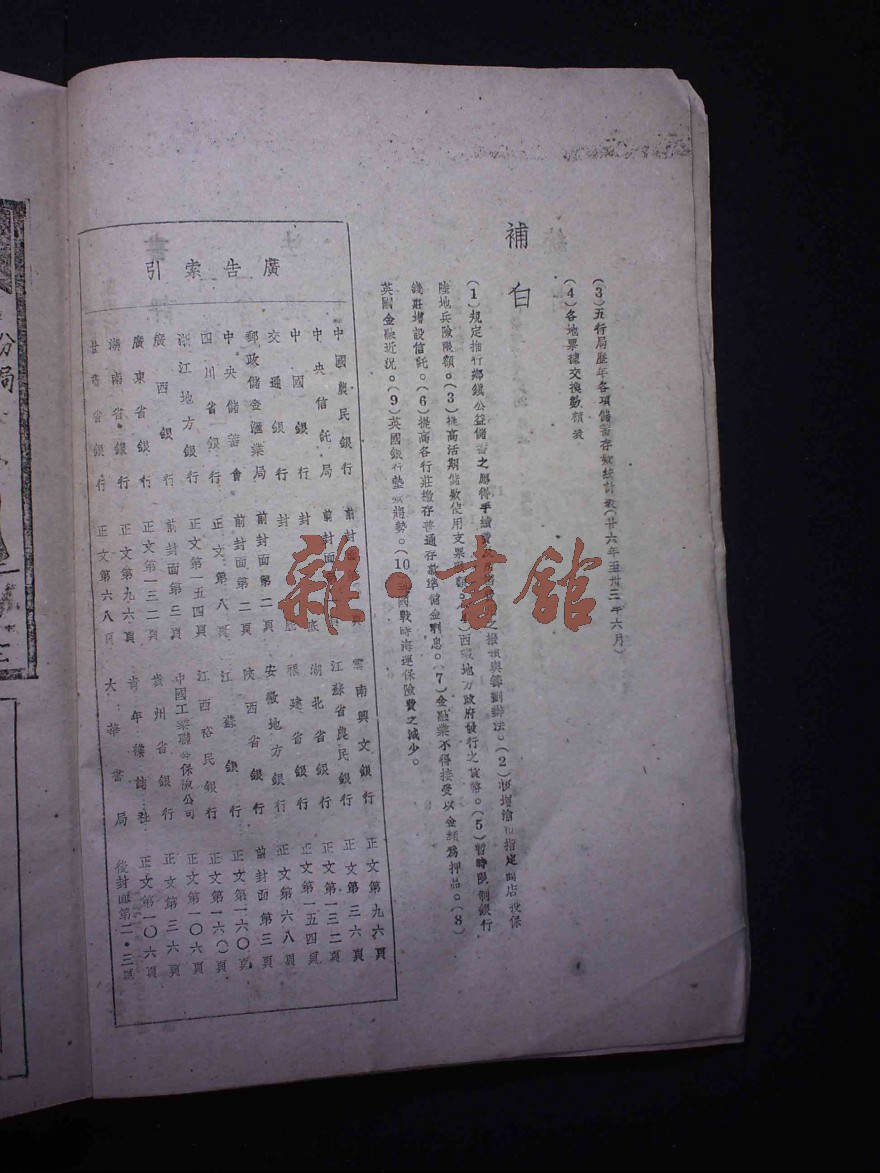 (3)五行局歷年各項儲蓄存款統計表(廿六年至卅三年六月)
(4)各地票據交換數額表
補白
(1)規定推行鄉鎮公益儲蓄之 手續費 之撥 與籌劃辦法。(2) 增渝 指定 店 保
陸地兵險限額。(3)提高活期儲款使用支票 西 地方政府發行之 幣。(5)暫時限制銀行
錢莊增設信託。(6)提高各行莊繳存普通存款準儲金利息。(7)金融業不得接受以金類爲押品。(8)
英國金融近況。(9)英國銀行墊款趨勢。(10) 國戰時海運保險費之減少。
廣告索引
中國農民銀行 前封面
中央信託局 前封面
中國銀行 封 底
交通銀行 封
郵政儲金滙業局 前封面第二頁
中央儲蓄會 前封面第二頁
四川省銀行 正文第八頁
浙江地方銀行 正文第一五四頁
廣西銀行 前封面第三頁
廣東省銀行 正文第一三二頁
湖南省銀行 正文第九六頁
甘肅省銀行 正文第六八頁
雲南興文銀行 正文第九六頁
江蘇省農民銀行 正文第三六頁
湖北省銀行 正文第一三二頁
福建省銀行 正文第一五四頁
安徽地方銀行 正文第六八頁
陝西省銀行 前封面第三頁
江蘇銀行 正文第一六〇頁
江西裕民銀行 正文第一六〇頁
中國工業聯合保險公司 正文第一〇六頁
貴州省銀行 正文第三六頁
青年雜誌社 正文第一〇六頁
大華書局 後封面第二·三頁
雜·書館
份局